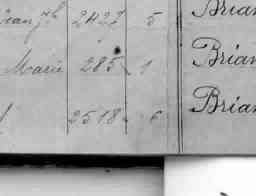 Jean Jh 2427 5 Brian
Marie 285 1 Brian
2518 6 Brian